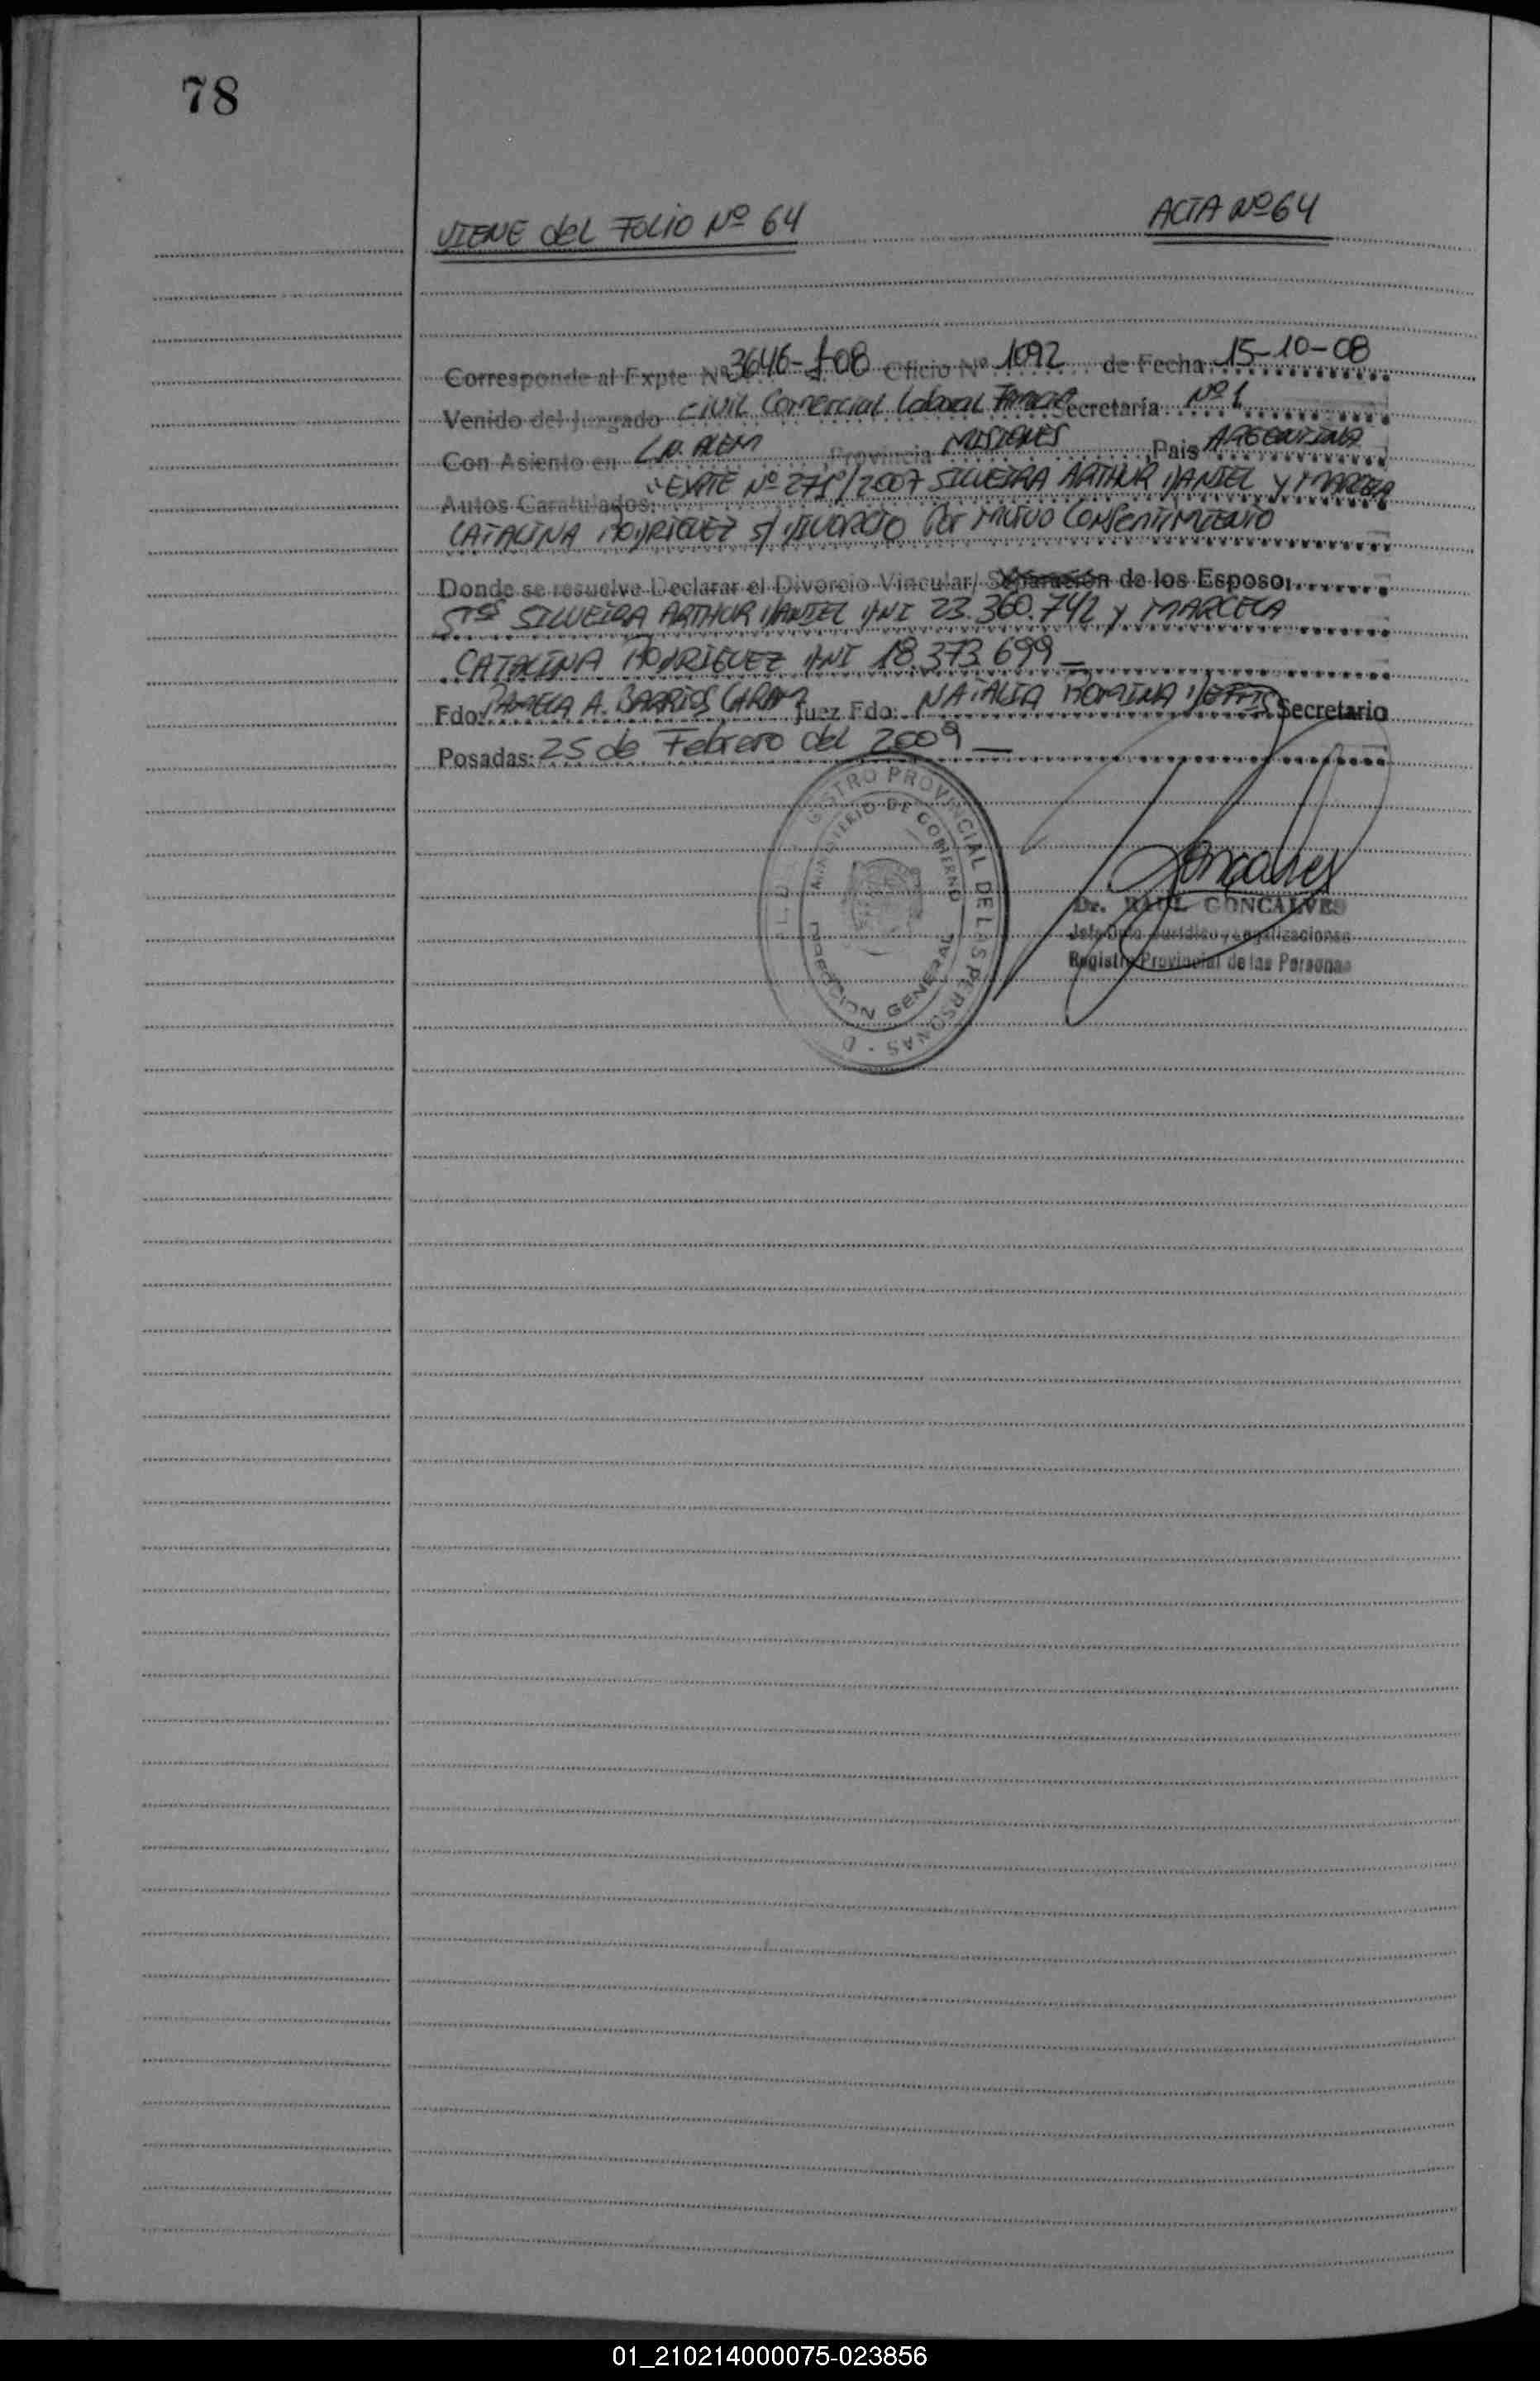 78
VIENE del FOLIO Nº 64
ACTA Nº 64
Corresponde al Expte Nº 3646-f-08 Oficio Nº 1092 de Fecha 15-10-08
Venido del Juzgado Civil Comercial Laboral Secretaría Nº 1
Con Asiento en L.N. ALEM Provincia MISIONES Pais ARGENTINA
Autos Caratulados: "EXPTE Nº /2007 SILVEIRA ARTHUR DANIEL Y MARCELA
CATALINA RODRIGUEZ S/ DIVORCIO Por MUTUO CONSENTIMIENTO
Donde se resuelve Declarar el Divorcio Vincular/ Separación de los Esposo,
SRES SILVEIRA ARTHUR DANIEL DNI 23.360.742 y MARCELA
CATALINA RODRIGUEZ DNI 18.373.699
Fdo: PAMELA A. BARRIOS CARAM Juez Fdo: NATALIA ROMINA Secretario
Posadas: 25 de Febrero del 2009
REGISTRO PROVINCIAL DE LAS PERSONAS
MINISTERIO DE GOBIERNO
DIRECCION GENERAL
Dr. RAUL GONCALVES
Jefe Dpto. Jurídico y Legalizaciones
Registro Provincial de las Personas
01_210214000075-023856